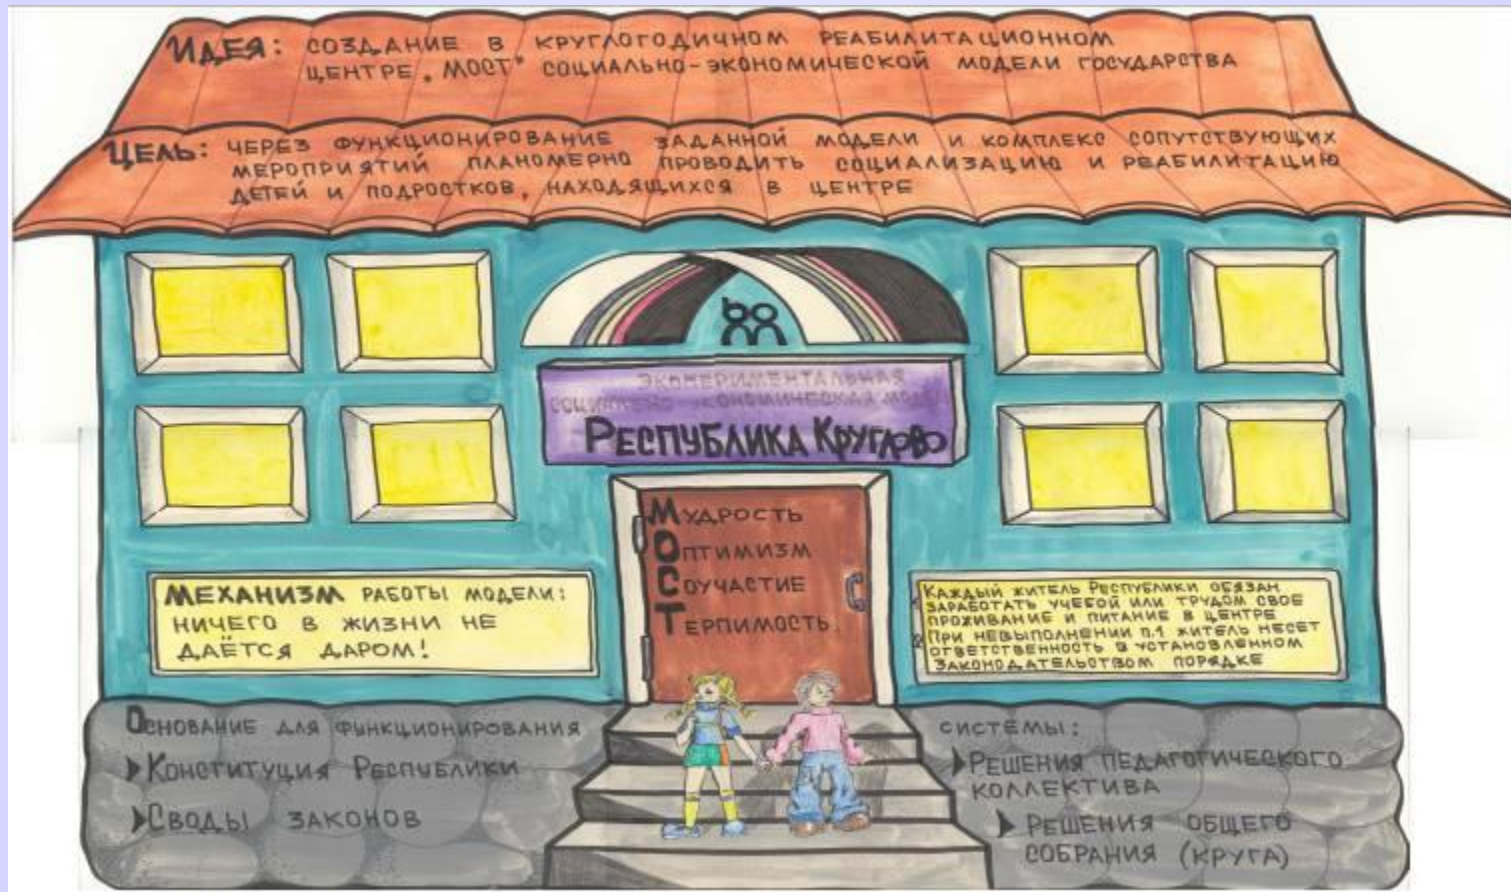 ИДЕЯ: СОЗДАНИЕ В КРУГЛОГОДИЧНОМ РЕАБИЛИТАЦИОННОМ
ЦЕНТРЕ „МОСТ" СОЦИАЛЬНО-ЭКОНОМИЧЕСКОЙ МОДЕЛИ ГОСУДАРСТВА
ЦЕЛЬ: ЧЕРЕЗ ФУНКЦИОНИРОВАНИЕ ЗАДАННОЙ МОДЕЛИ И КОМПЛЕКС СОПУТСТВУЮЩИХ
МЕРОПРИЯТИЙ ПЛАНОМЕРНО ПРОВОДИТЬ СОЦИАЛИЗАЦИЮ И РЕАБИЛИТАЦИЮ
ДЕТЕЙ И ПОДРОСТКОВ, НАХОДЯЩИХСЯ В ЦЕНТРЕ
ЭКСПЕРИМЕНТАЛЬНАЯ
СОЦИАЛЬНО-ЭКОНОМИЧЕСКАЯ МОДЕЛЬ
РЕСПУБЛИКА КРУГЛОВО
МУДРОСТЬ
ОПТИМИЗМ
СОУЧАСТИЕ
ТЕРПИМОСТЬ
МЕХАНИЗМ РАБОТЫ МОДЕЛИ:
НИЧЕГО В ЖИЗНИ НЕ
ДАЁТСЯ ДАРОМ!
КАЖДЫЙ ЖИТЕЛЬ РЕСПУБЛИКИ ОБЯЗАН
ЗАРАБОТАТЬ УЧЕБОЙ ИЛИ ТРУДОМ СВОЕ
ПРОЖИВАНИЕ И ПИТАНИЕ В ЦЕНТРЕ
ПРИ НЕВЫПОЛНЕНИИ П.1 ЖИТЕЛЬ НЕСЕТ
ОТВЕТСТВЕННОСТЬ В УСТАНОВЛЕННОМ
ЗАКОНОДАТЕЛЬСТВОМ ПОРЯДКЕ
ОСНОВАНИЕ ДЛЯ ФУНКЦИОНИРОВАНИЯ
КОНСТИТУЦИЯ РЕСПУБЛИКИ
СВОДЫ ЗАКОНОВ
СИСТЕМЫ:
РЕШЕНИЯ ПЕДАГОГИЧЕСКОГО
КОЛЛЕКТИВА
РЕШЕНИЯ ОБЩЕГО
СОБРАНИЯ (КРУГА)